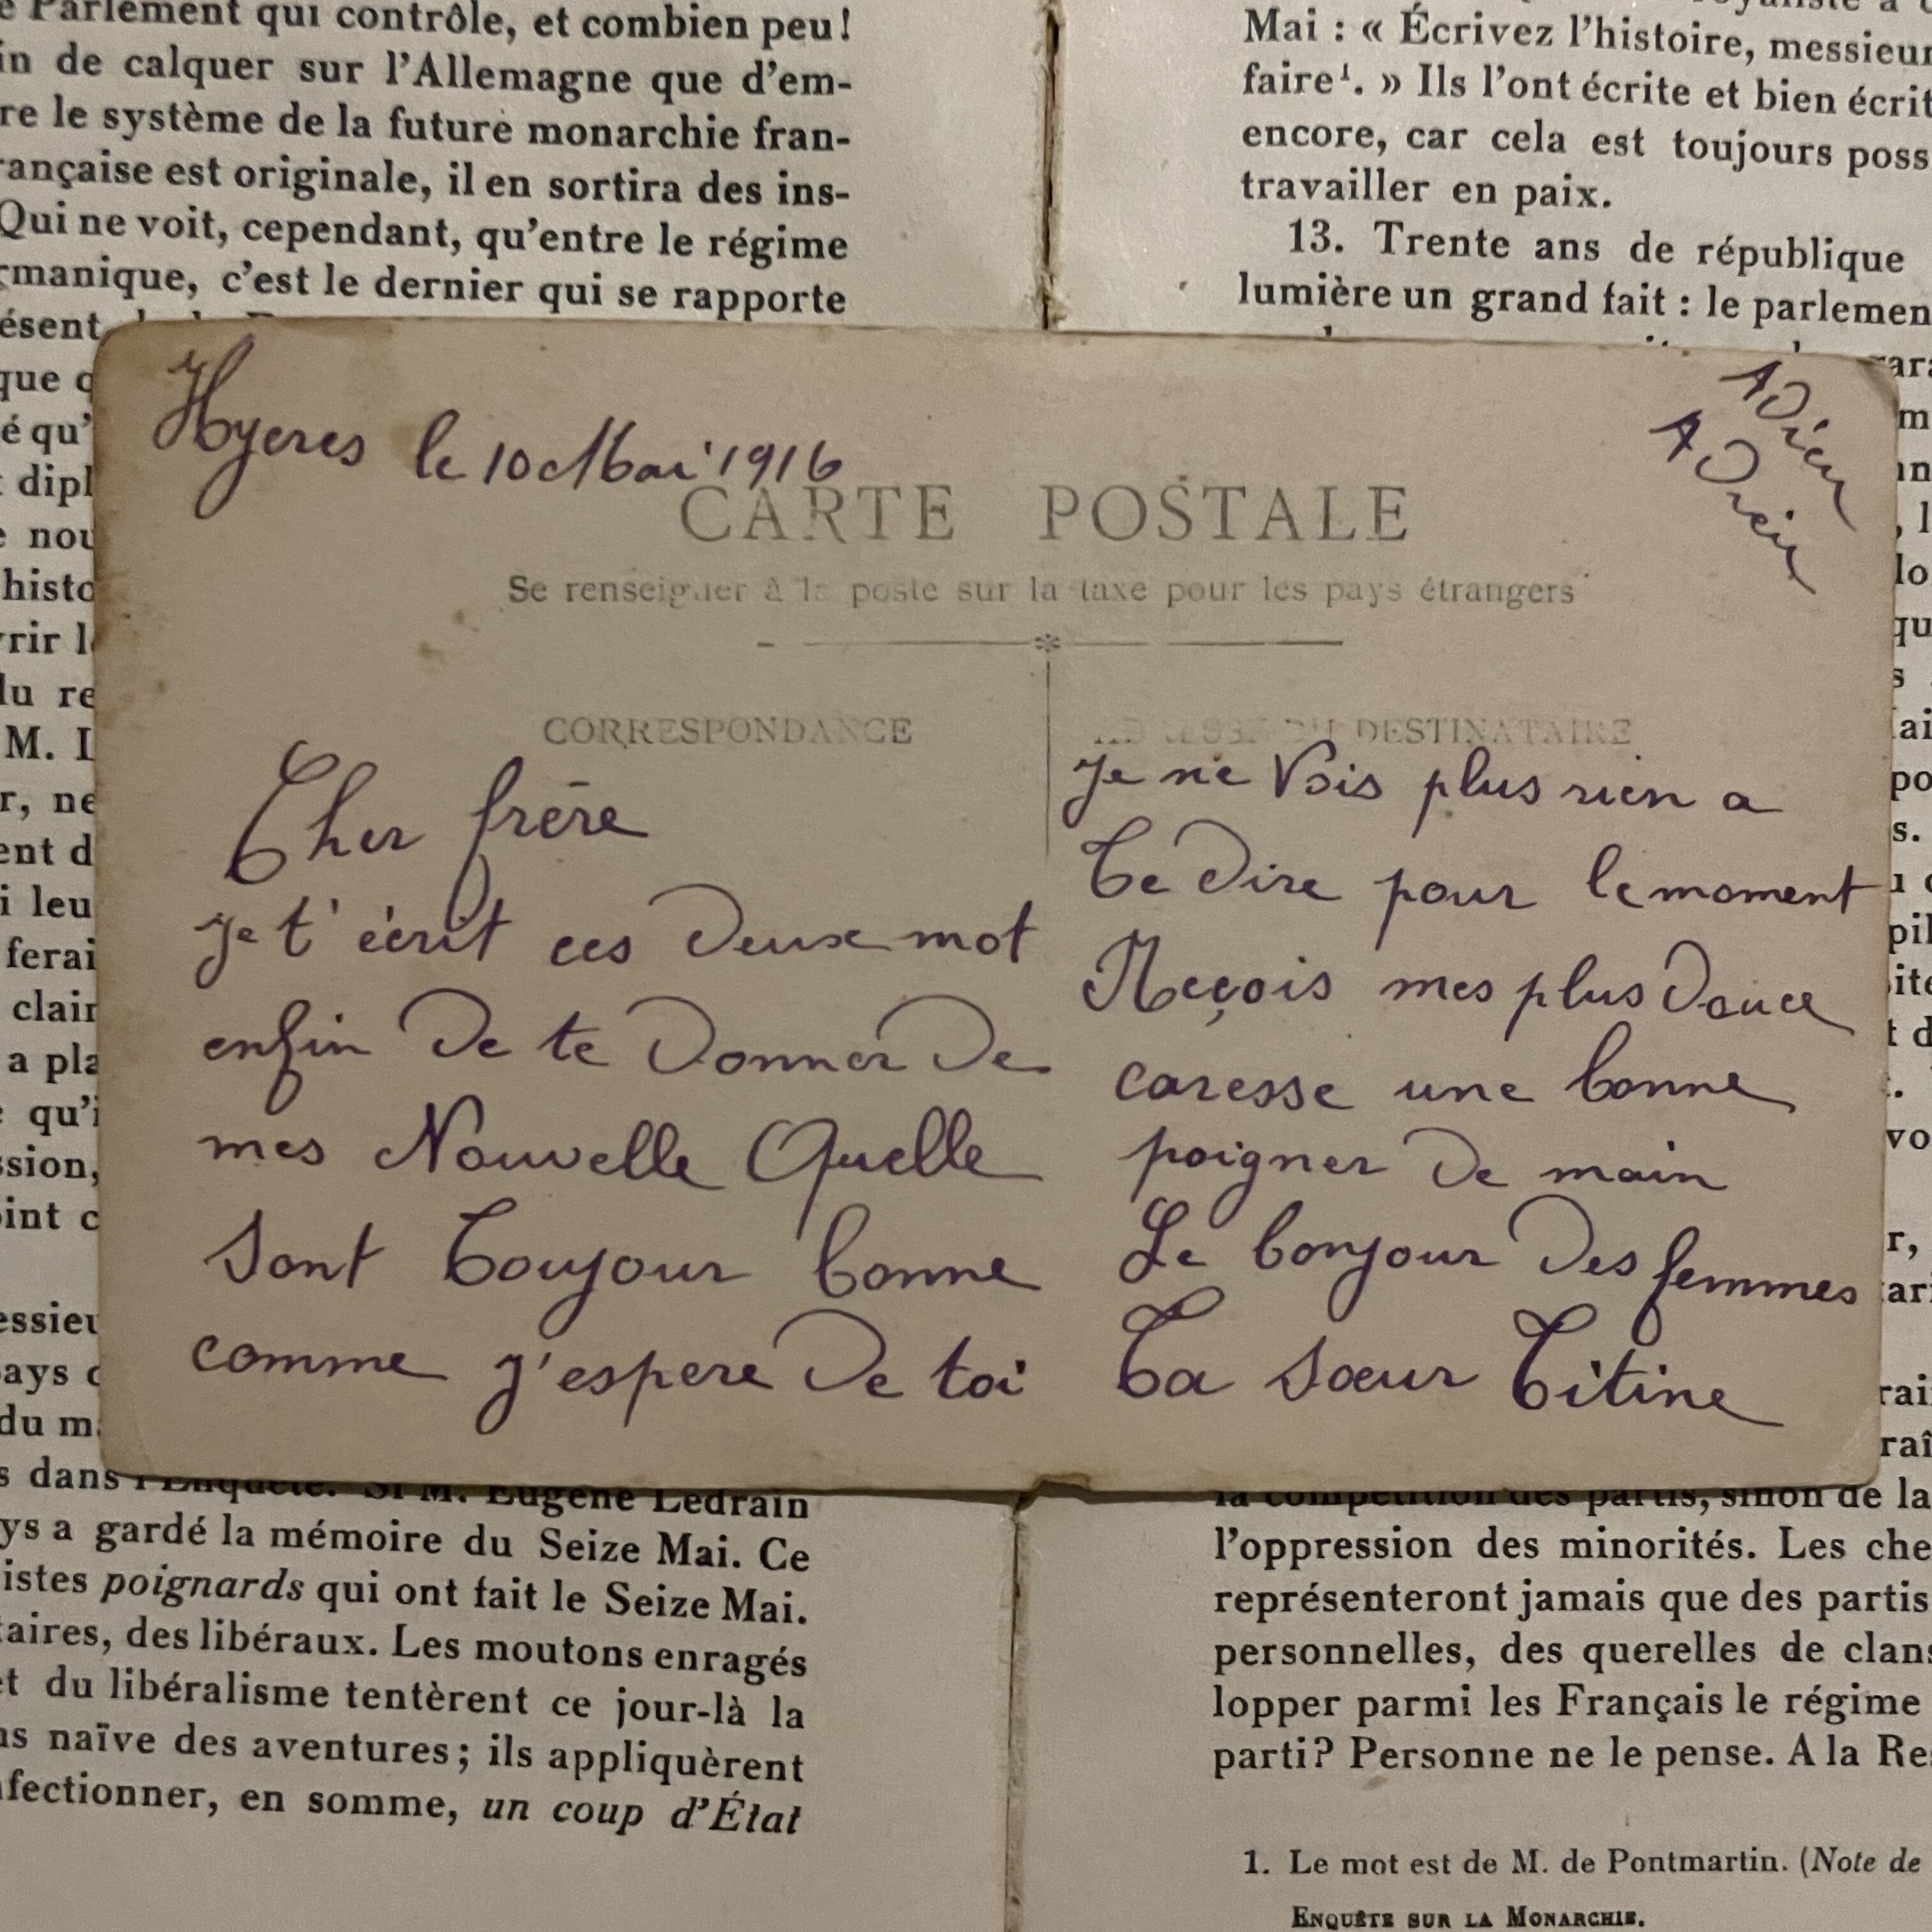 Parlement qui contrôle, et combien peu!
in de calquer sur l'Allemagne que d'em-
re le système de la future monarchie fran-
rançaise est originale, il en sortira des ins-
Qui ne voit, cependant, qu'entre le régime
rmanique, c'est le dernier qui se rapporte
ésent
que
é qu'
dipl
nou
histo
rir
du re
M.
r, ne
ent d
i leu
ferai
clair
a pla
qu'i
ssion,
oint c
essieu
pays
du m
s dans l'Enquête. Si M. Eugène Ledrain
ys a gardé la mémoire du Seize Mai. Ce
istes poignards qui ont fait le Seize Mai.
taires, des libéraux. Les moutons enragés
et du libéralisme tentèrent ce jour-là la
us naïve des aventures; ils appliquèrent
fectionner, en somme, un coup d'État
Mai : « Écrivez l'histoire, messieur
faire¹. » Ils l'ont écrite et bien écrit
encore, car cela est toujours poss
travailler en paix.
13. Trente ans de république
lumière un grand fait : le parlemen
Hyeres le 10 Mai 1916
ADieu
ADieu
CARTE POSTALE
Se renseigner à la poste sur la taxe pour les pays étrangers
CORRESPONDANCE
Cher frère
je t'écrit ces Deux mot
enfin De te Donner De
mes Nouvelle Quelle
Sont Toujour bonne
comme j'espere De toi
ADRESSE DU DESTINATAIRE
je ne Vois plus rien a
Te Dire pour le moment
Reçois mes plus Douce
caresse une bonne
poigner De main
Le bonjour Des femmes
Ta Sœur Titine
la compétition des partis, sinon de la
l'oppression des minorités. Les che
représenteront jamais que des partis
personnelles, des querelles de clans
lopper parmi les Français le régime
parti? Personne ne le pense. A la Re
1. Le mot est de M. de Pontmartin. (Note de
ENQUÊTE SUR LA MONARCHIE.